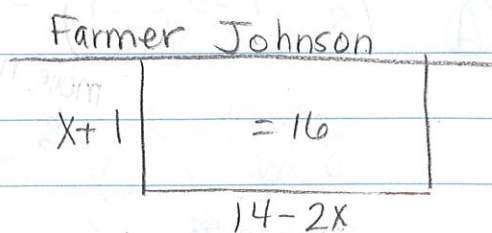 Farmer Johnson
x+1 = 16
14-2x